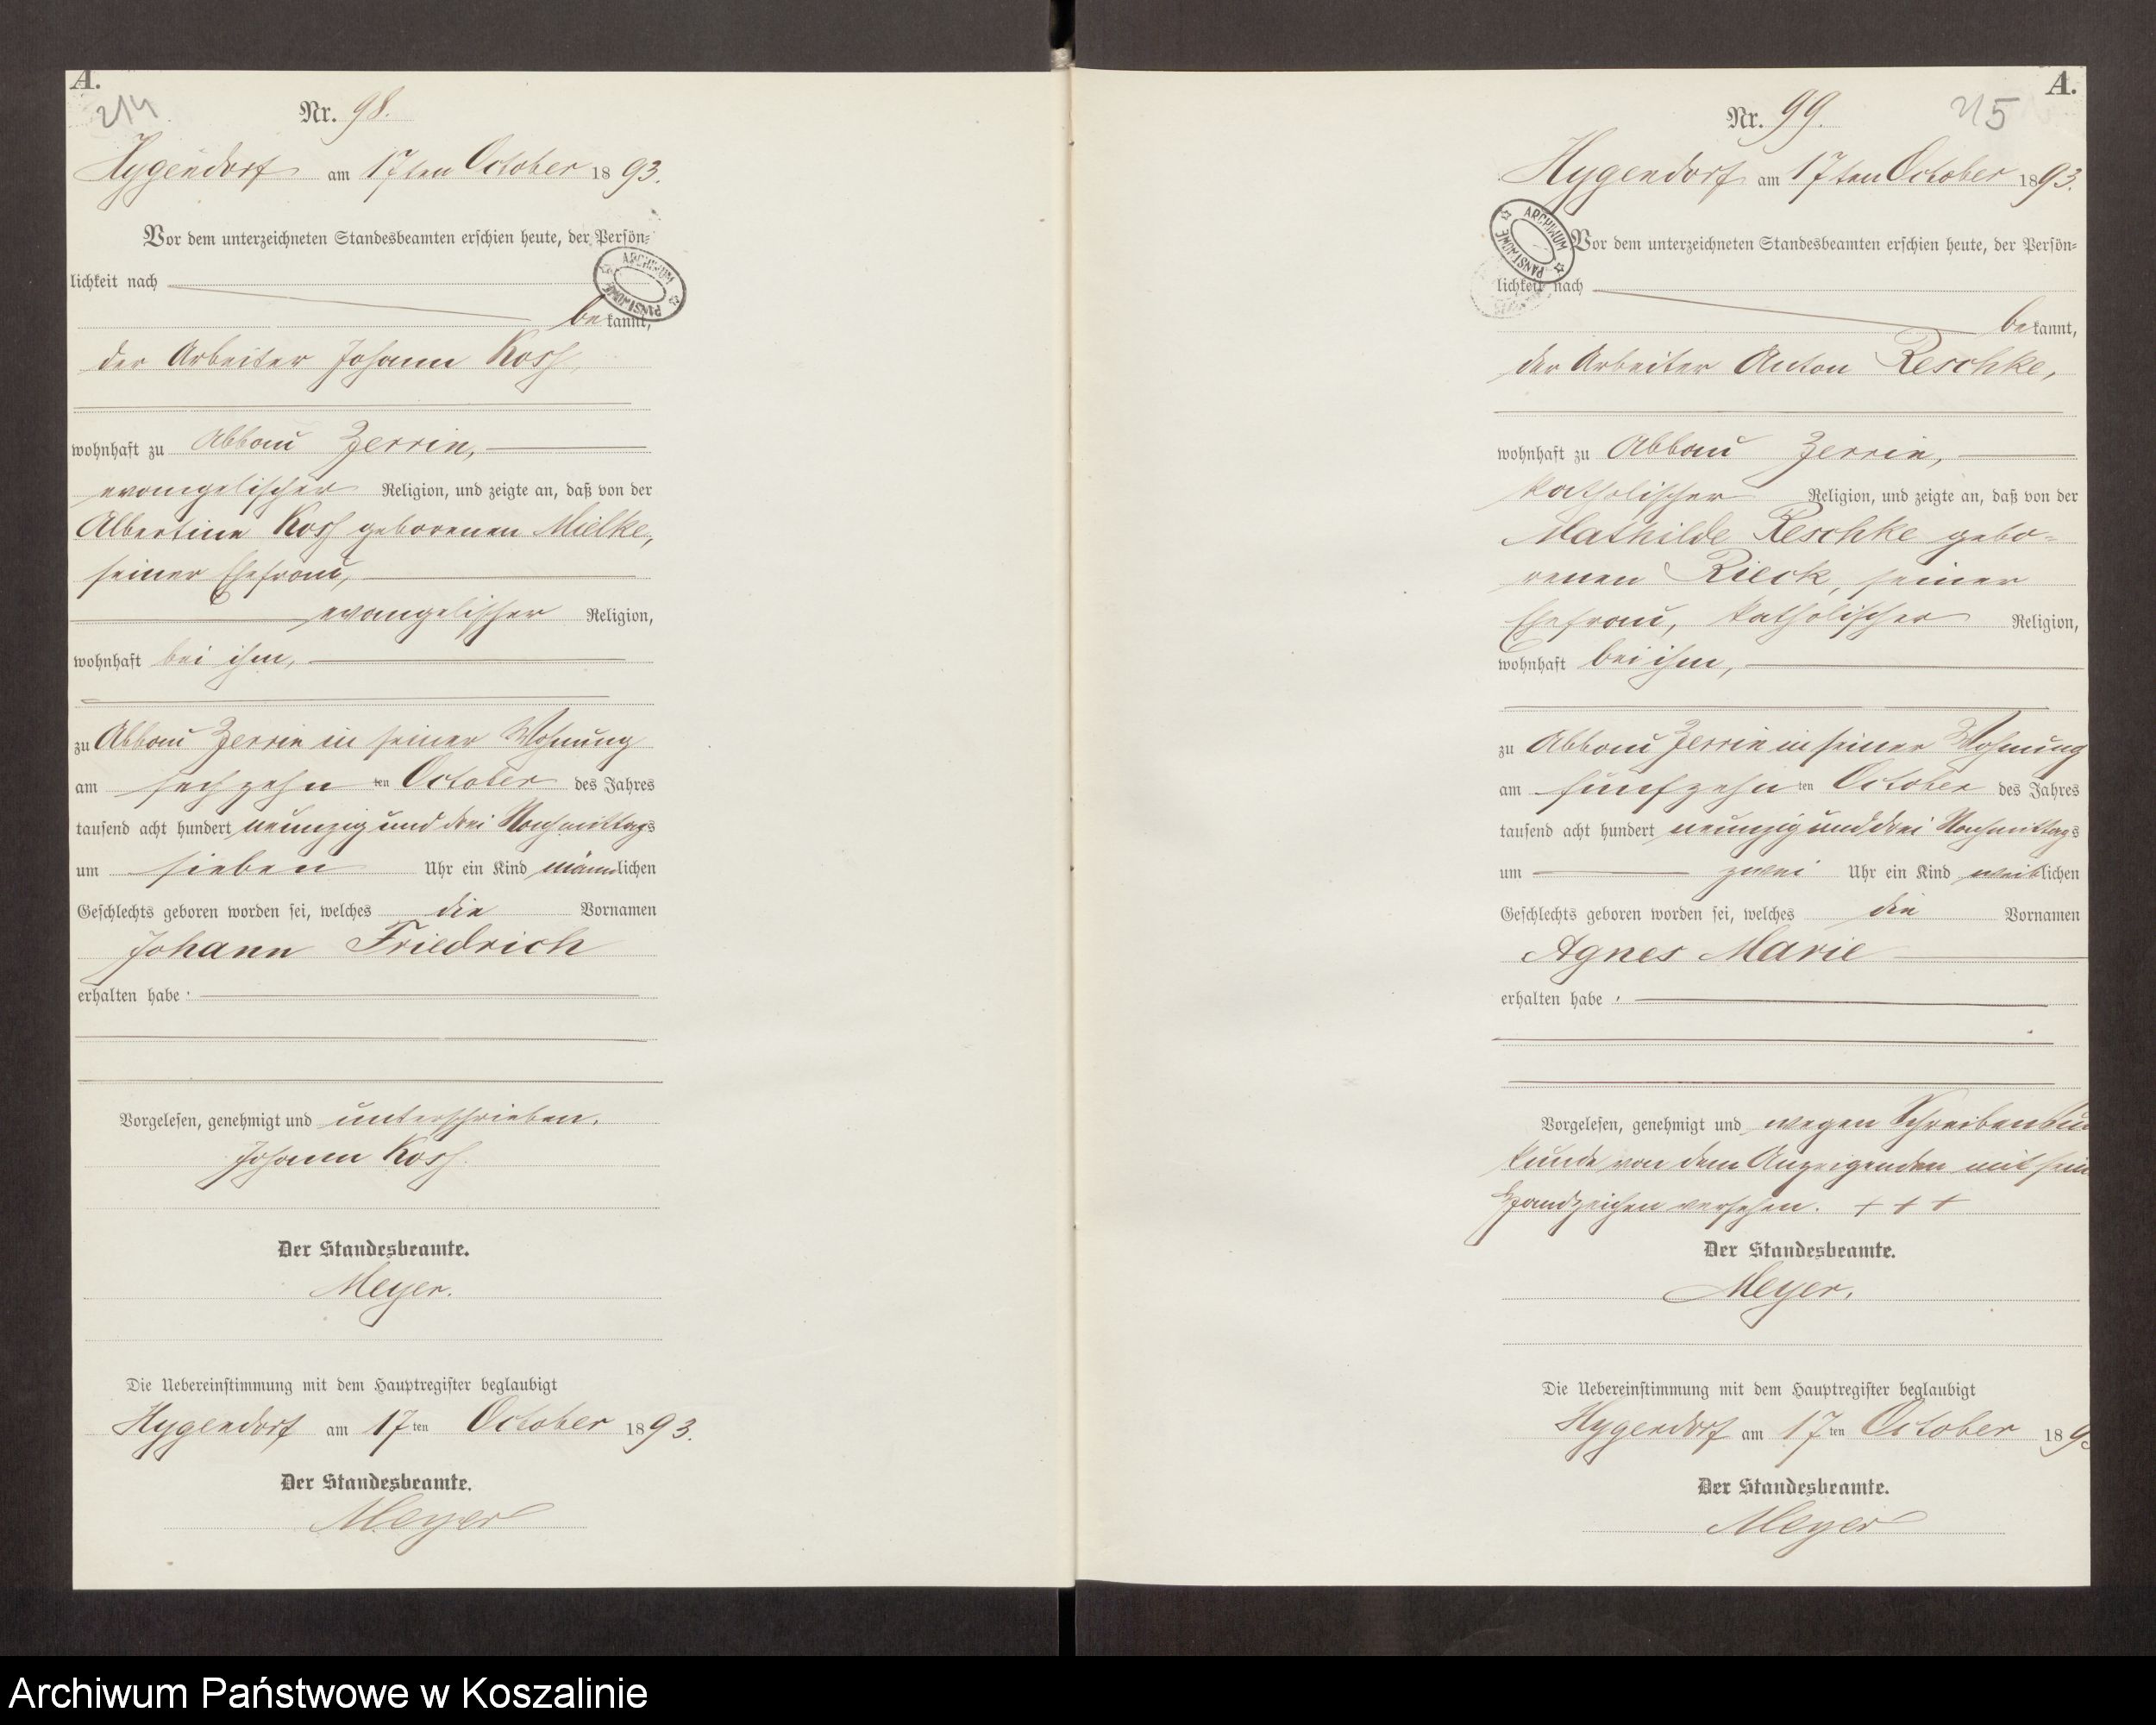 A.
214
Nr. 98.
Hygendorf am 17ten October 1893.
Vor dem unterzeichneten Standesbeamten erschien heute, der Persön-
lichkeit nach
bekannt,
der Arbeiter Johann Kosch
wohnhaft zu Abbau Zerrin,
evangelischer Religion, und zeigte an, daß von der
Albertine Kosch geborenen Mielke,
seiner Ehefrau,
evangelischer Religion,
wohnhaft bei ihm,
zu Abbau Zerrin in seiner Wohnung
am sechzehnten October des Jahres
tausend acht hundert neunzig und drei Nachmittags
um sieben Uhr ein Kind männlichen
Geschlechts geboren worden sei, welches die Vornamen
Johann Friedrich
erhalten habe.
Vorgelesen, genehmigt und unterschrieben.
Johann Kosch.
Der Standesbeamte.
Meyer.
Die Uebereinstimmung mit dem Hauptregister beglaubigt
Hygendorf am 17ten October 1893.
Der Standesbeamte.
Meyer
ARCHIWUM PAŃSTWOWE
A.
215
Nr. 99.
Hygendorf am 17ten October 1893.
Vor dem unterzeichneten Standesbeamten erschien heute, der Persön-
lichkeit nach
bekannt,
der Arbeiter Anton Reschke,
wohnhaft zu Abbau Zerrin,
katholischer Religion, und zeigte an, daß von der
Mathilde Reschke gebo-
renen Rieck, seiner
Ehefrau, katholischer Religion,
wohnhaft bei ihm,
zu Abbau Zerrin in seiner Wohnung
am fünfzehnten October des Jahres
tausend acht hundert neunzig und drei Nachmittags
um zwei Uhr ein Kind weiblichen
Geschlechts geboren worden sei, welches die Vornamen
Agnes Marie
erhalten habe.
Vorgelesen, genehmigt und wegen Schreibensun
kunde von dem Anzeigenden mit sein
Handzeichen versehen. + + +
Der Standesbeamte.
Meyer.
Die Uebereinstimmung mit dem Hauptregister beglaubigt
Hygendorf am 17ten October 189
Der Standesbeamte.
Meyer
ARCHIWUM PAŃSTWOWE
Archiwum Państwowe w Koszalinie